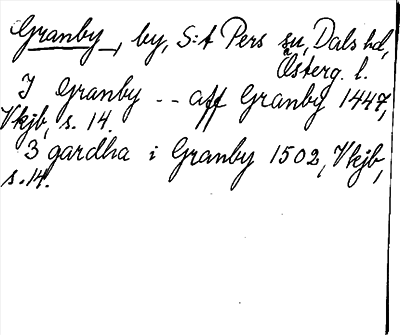 Granby, by, S:t Pers sn, Dals hd,
Österg. l.
I Granby -- aff Granby 1447,
Vkjb, s. 14.
3 gardha i Granby 1502, Vkjb,
s. 14.